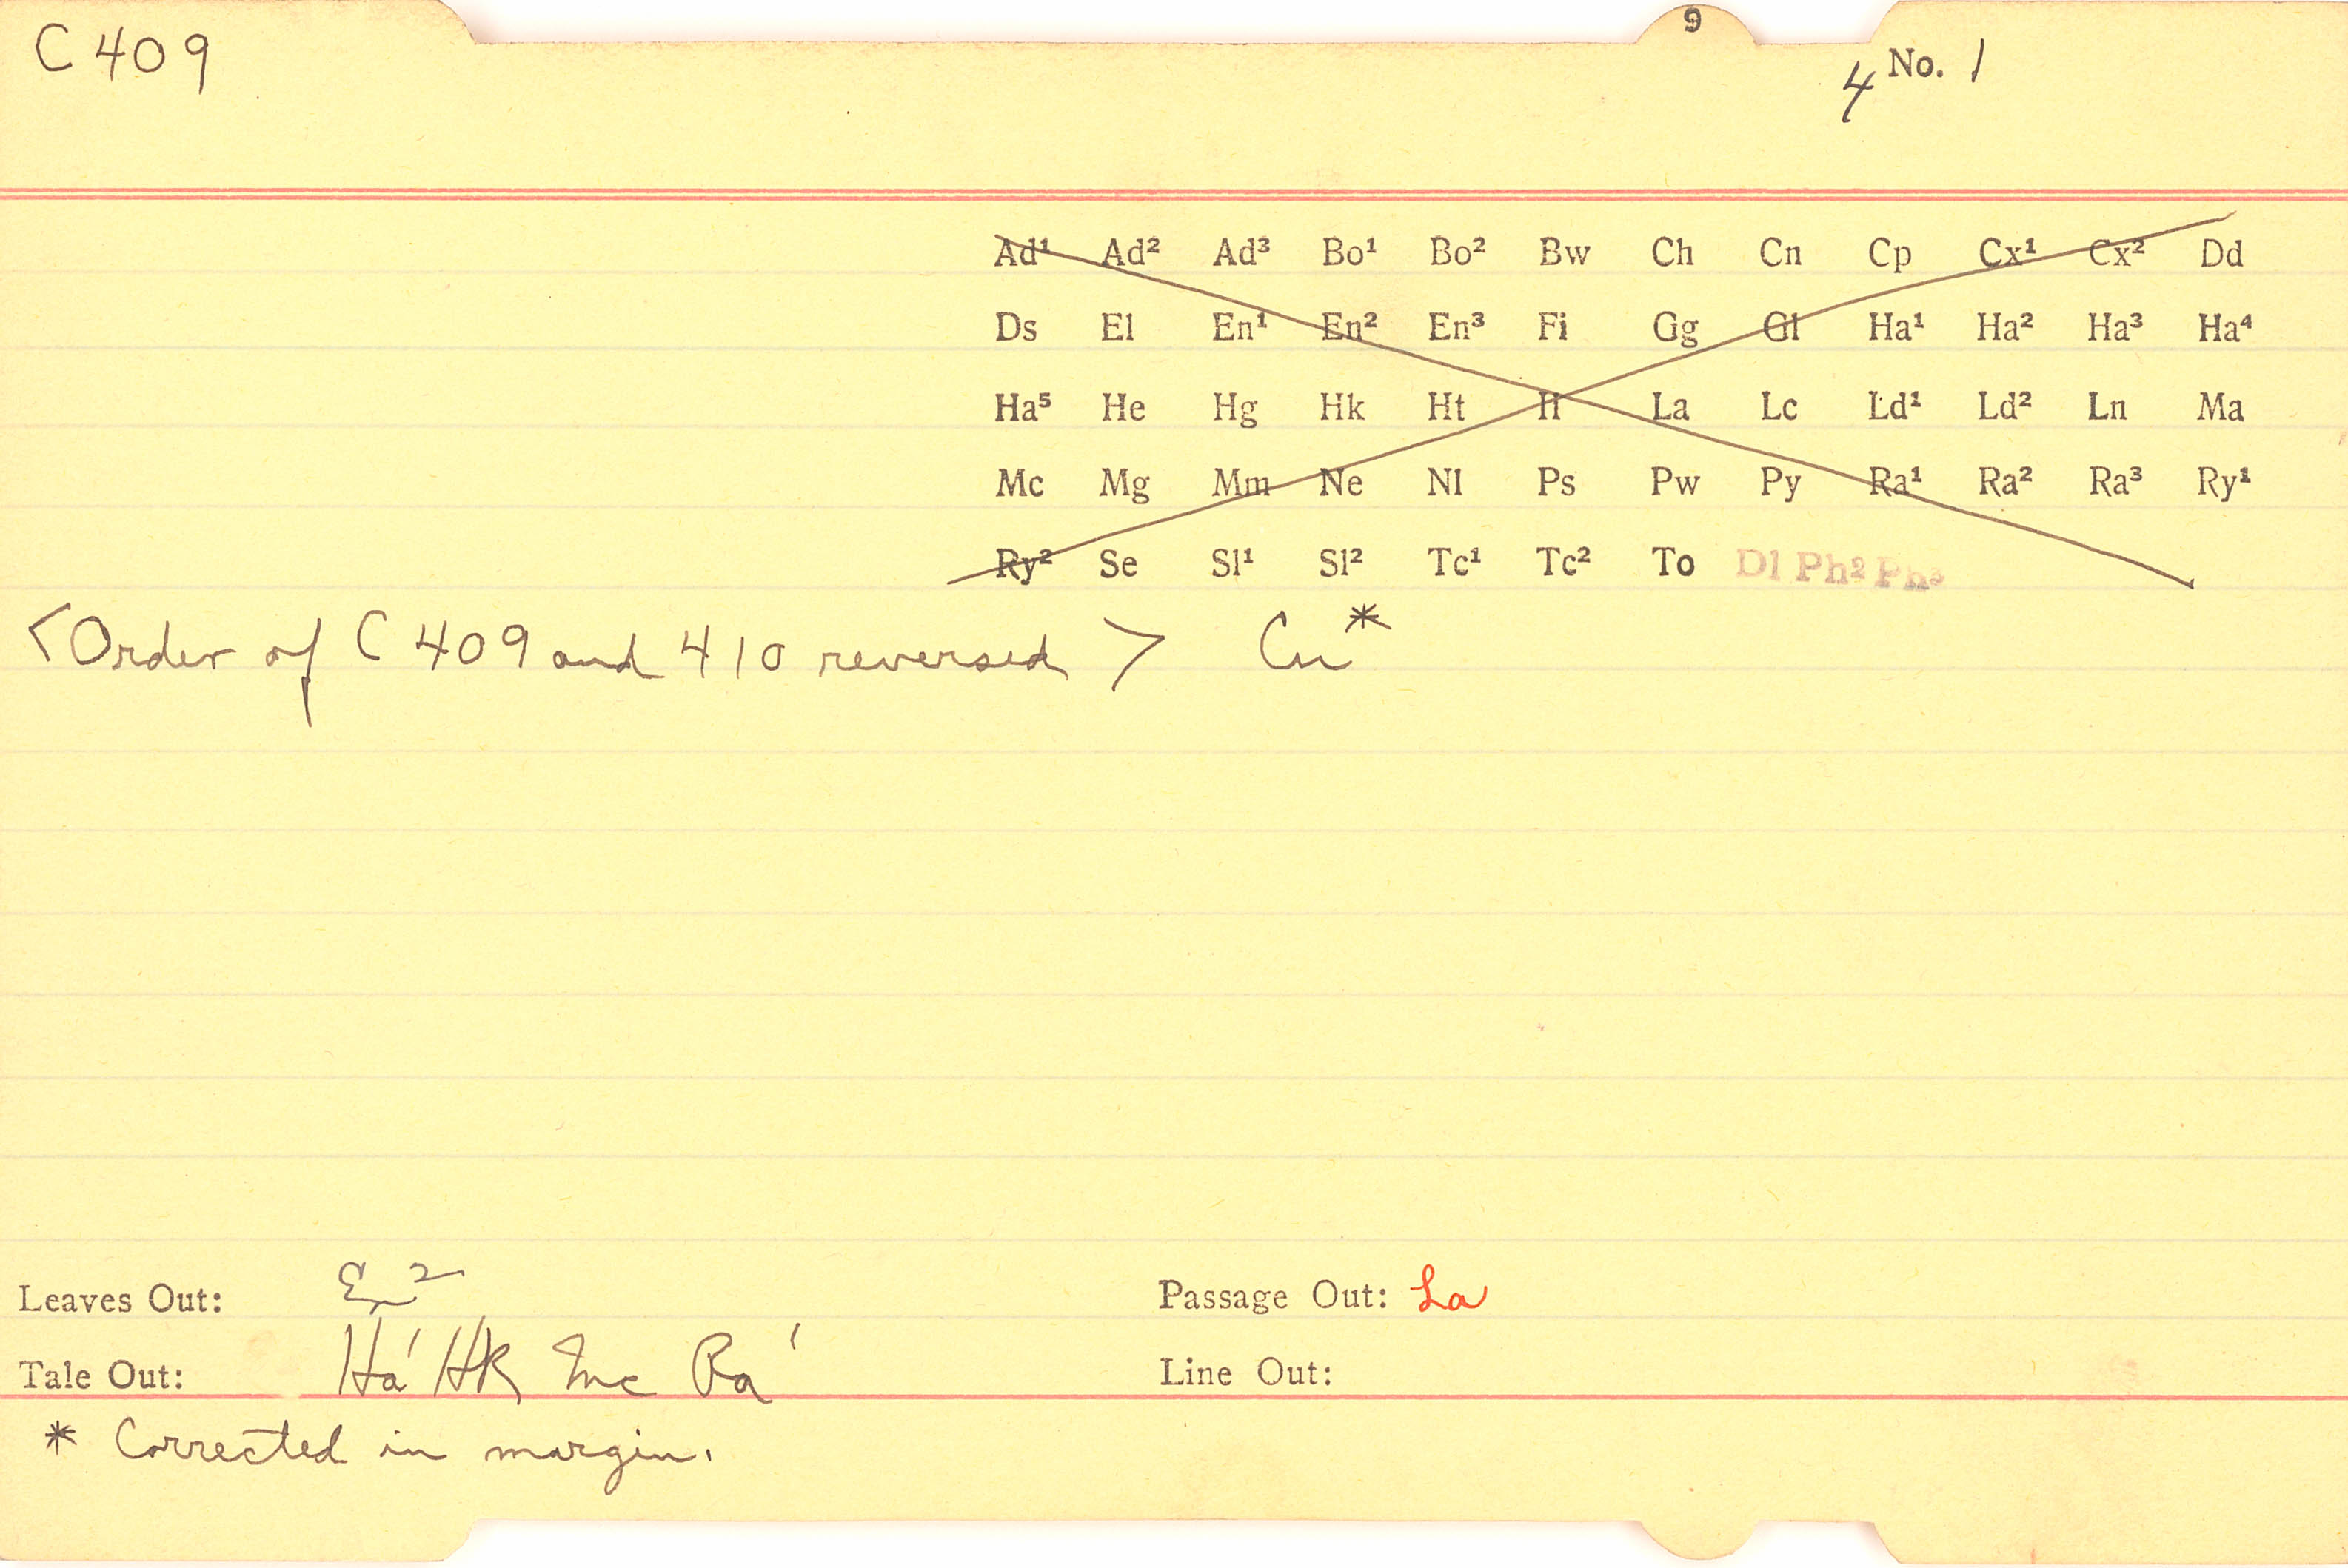 9
C 409
4 No. 1
Ad¹ Ad² Ad³ Bo¹ Bo² Bw Ch Cn Cp Cx¹ Cx² Dd
Ds El En¹ En² En³ Fi Gg Gl Ha¹ Ha² Ha³ Ha⁴
Ha⁵ He Hg Hk Ht Ii La Lc Ld¹ Ld² Ln Ma
Mc Mg Mm Ne Nl Ps Pw Py Ra¹ Ra² Ra³ Ry¹
Ry² Se Sl¹ Sl² Tc¹ Tc² To Dl Ph² Ph³
<Order of C 409 and 410 reversed> Cn*
Leaves Out: En² Passage Out: La
Tale Out: Ha¹ Hk Mc Ra¹ Line Out:
* Corrected in margin.